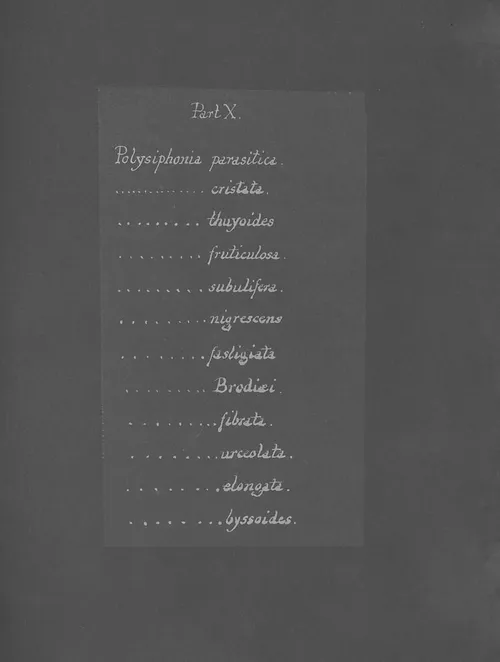 Part X.
Polysiphonia parasitica.
............. cristata.
......... thuyoides
......... fruticulosa.
......... subulifera.
......... nigrescens
......... fastigiata
......... Brodiæi.
......... fibrata.
......... urceolata.
........ elongata.
........ byssoides.